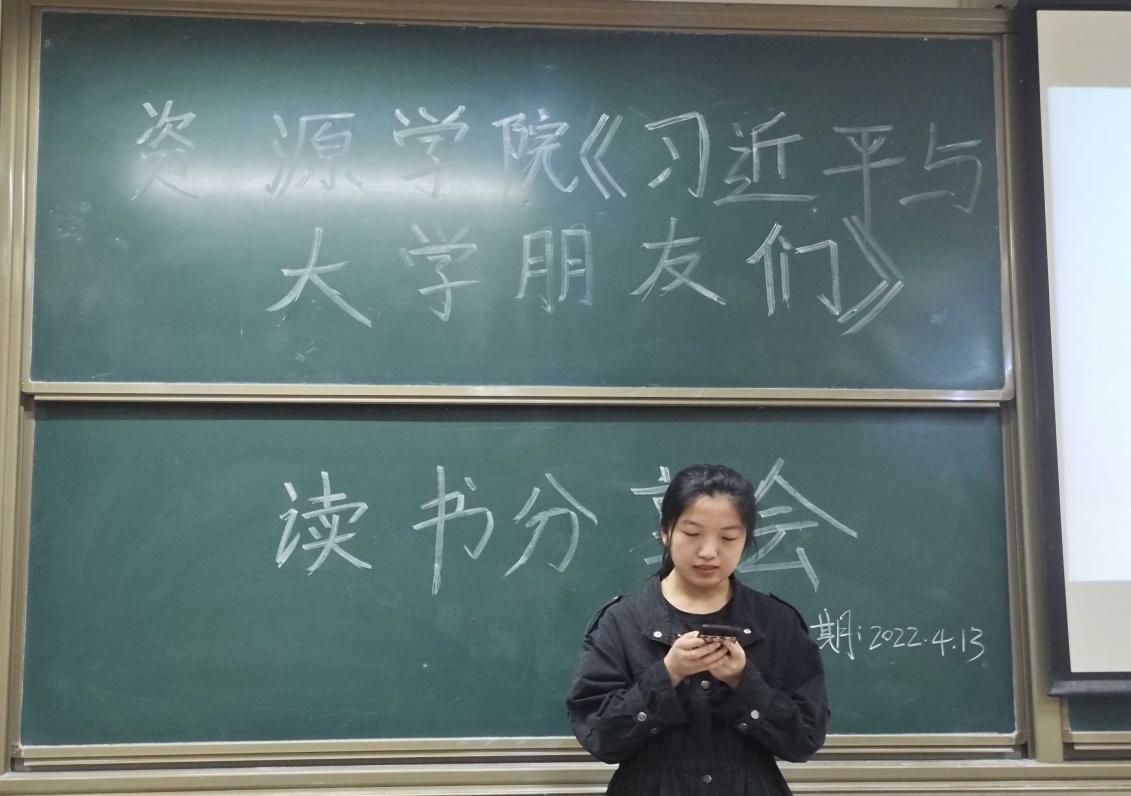 资源学院《习近平与
大学朋友们》
读书分享会
期:2022.4.13